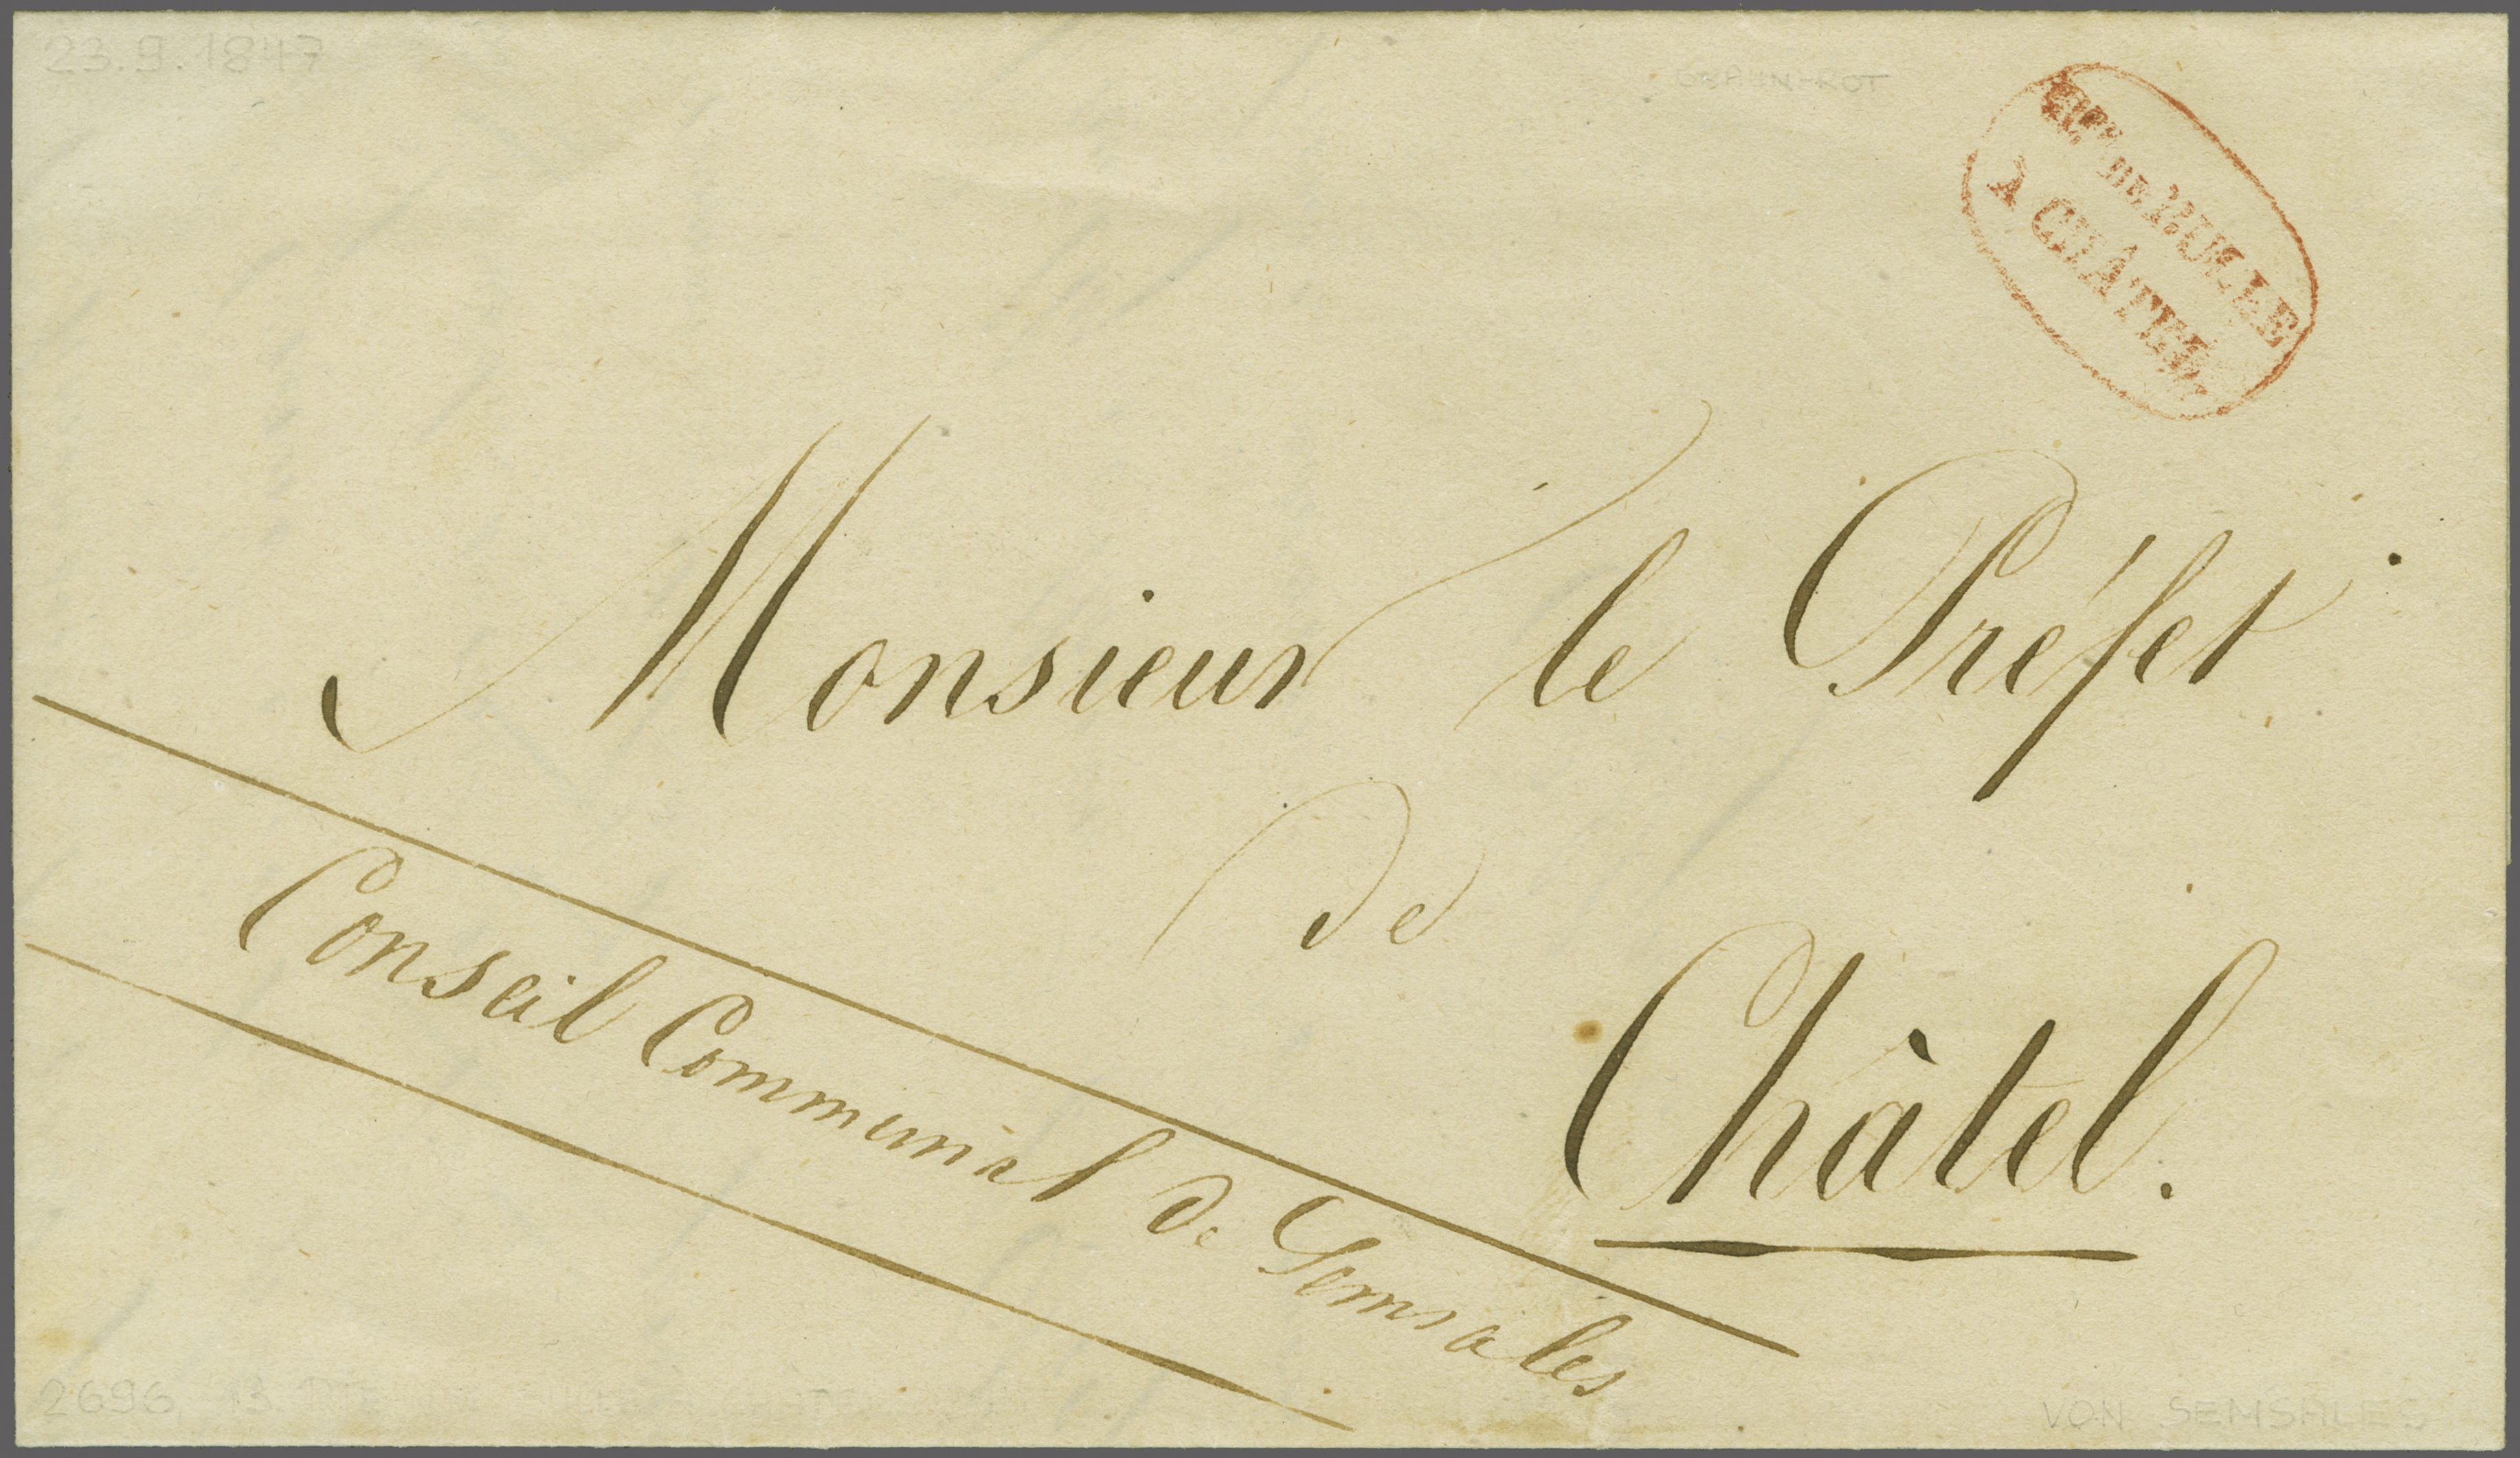 23.9.1847
BRAUN-ROT
DE BULLE
À CHÂTEL
Monsieur le Préfet
de
Châtel.
Conseil Communal de Semsales
2696
VON SEMSALES